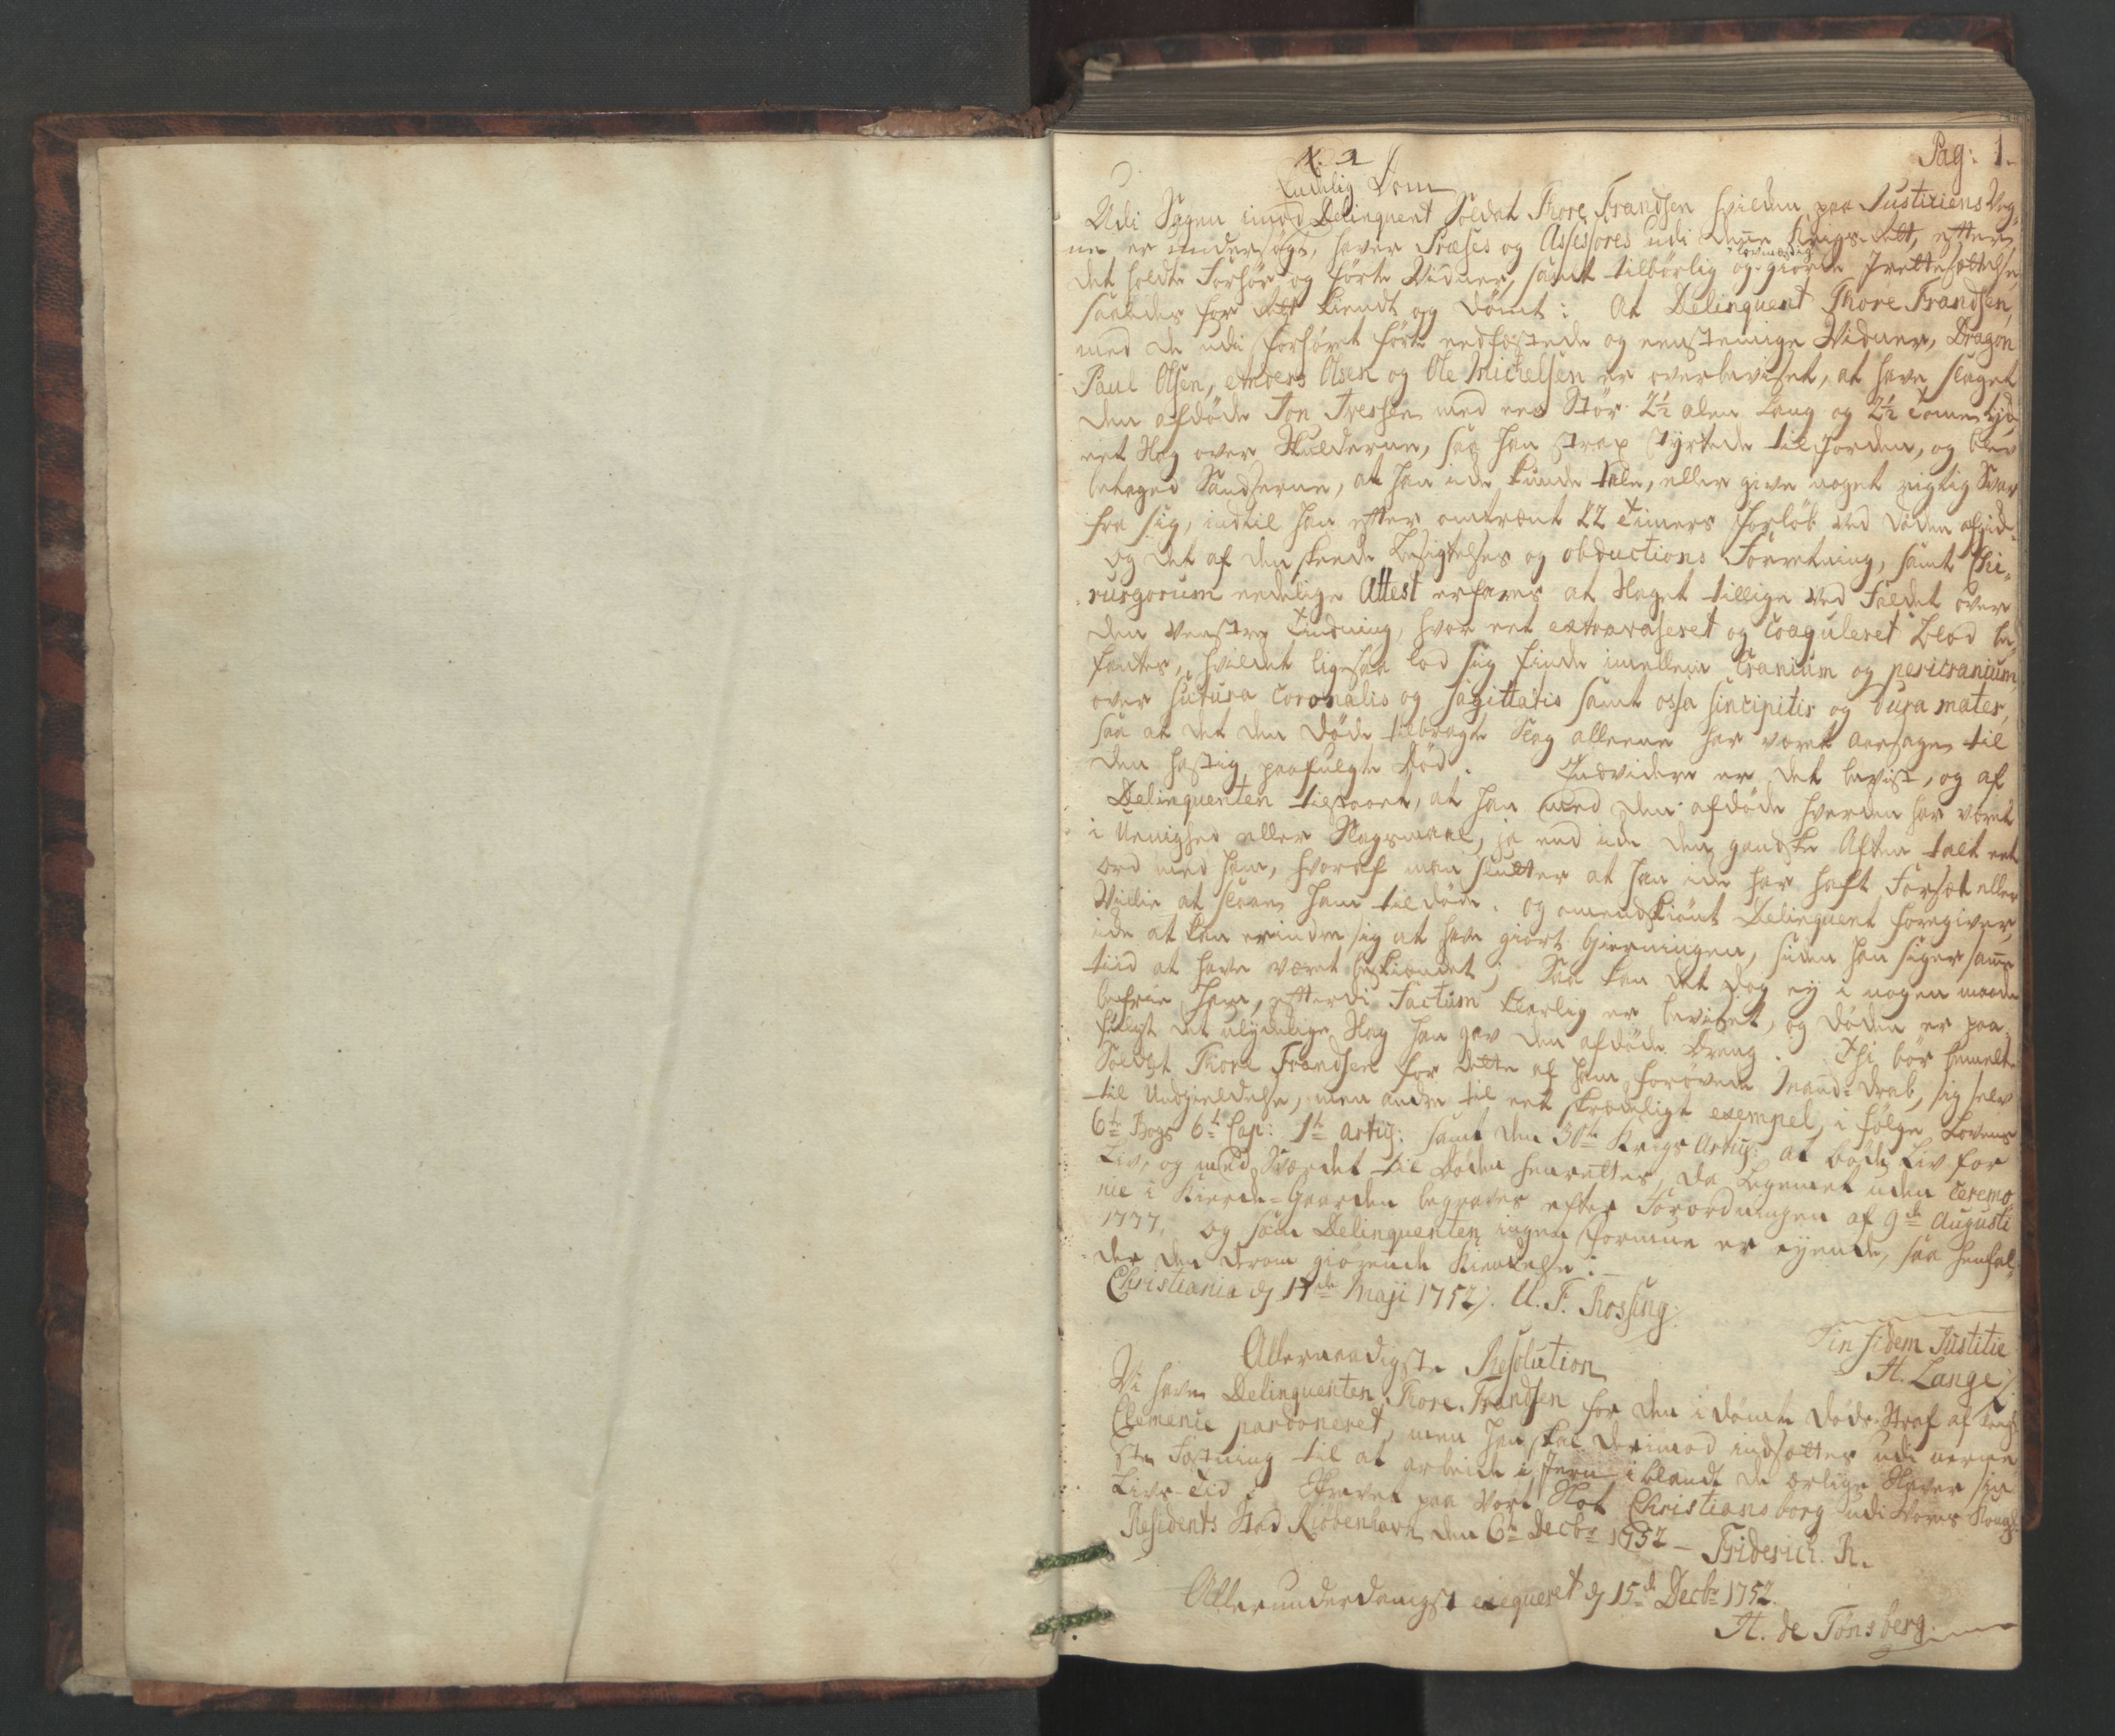 Pag: 1.
N. 1
Endelig Dom
Udi Sagen imod Delinquent Soldat Thore Frandsen hvilden paa Justitiens Veg-
ne er undersögt, haver Præses og Assessores udi denne Krigs-Rett, efter
det holdte Forhör og förte Vidner, samt tilbörlig og giorde Irettesættelse
lovmæssig
saaledes for Rett kiendt og dömt: At Delinquent Thore Frandsen,
med de udi Forhöret förte eedfæstede og eenstemige Vidner, Dragon
Paul Olsen, Anders Olsen og Ole Michelsen er overbeviset, at have slaget
den afdöde Jon Iversen med een Stör 2½ alen Lang og 2½ Tomme tyk
eet Slag over Skulderne, saa han strax styrtede til Jorden, og blev
betaged Sandserne, at han icke kunde tale, eller give noget rigtig Svar
fra sig, indtil han efter omtrent 22 Timers Forlöb ved Döden afgik.
Og det af den skeede Besigtelses og obductions Forretning, samt Chi-
rurgorum eedelige Attest erfares at Slaget tillige ved Faldet over
den venstre Tinding, hvor eet extravaseret og coaguleret Blod be-
fantes, hvilket ligesaa lod sig finde imellem Cranium og pericranium,
over sutura coronalis og sagittalis samt ossa sincipitis og dura mater,
saa at det den Döde tilbragte Slag alleene har været aarsagen til
den hastig paafulgte Död. Endvidere er det bevist, og af
Delinquenten tilstaaet, at han med den afdöde hverken har været
i Uenighed eller Slagsmaal, ja end icke den gandske Aften talt eet
ord med ham, hvoraf man slutter at han icke har haft Forsæt eller
Villie at slaae ham til döde. og omendskiönt Delinquent foregiver,
icke at kan erindre sig at have giort Gierningen, siden han siger samme
tiid at have været beskiænket; Saa kan det dog ey i nogen maade
befrie ham, efterdi Factum klarlig er beviset, og Döden er paa-
fulgt det ulydelige Slag han gav den afdöde Dreng. Thi bör bemelte
Soldat Thore Frandsen for dette af ham forövede Mand-Drab, sig selv
til Undgieldelse, men andre til eet skrækeligt exempel, i fölge Lovens
6te Bogs 6te Cap: 1te Artig: samt den 30te Krigs Artig: at böde Liv for
Liv, og med Sværdet til Döden henrettes, da Legemet uden Ceremo-
nie i Kierke-Gaarden begraves efter Forordningen af 9de Augusti
1737. Og som Delinquenten ingen Formue er eyende, saa henfal-
der den derom giörende Kiendelse.
Christiania d 17de Maji 1752. U. F. Rossing.
in fidem Justitie
H. Lange
Allernaadigste Resolution
Vi have Delinquenten Thore Frandsen for den idömte Döds Straf af Kongl.
Clemence pardoneret, men han skal derimod indsættes udi nærme-
ste Fæstning til at arbeide i Jern iblandt de ærlige Slaver sin
Livs-Tid. Skrevet paa Vort Slot Christiansborg udi Vores Kongl:
Residents Stad Kiöbenhavn den 6te Decbr 1752 - Friderich R.
Allerunderdanigst exequeret d 15de Decbr 1752.
H. de Tönsberg.